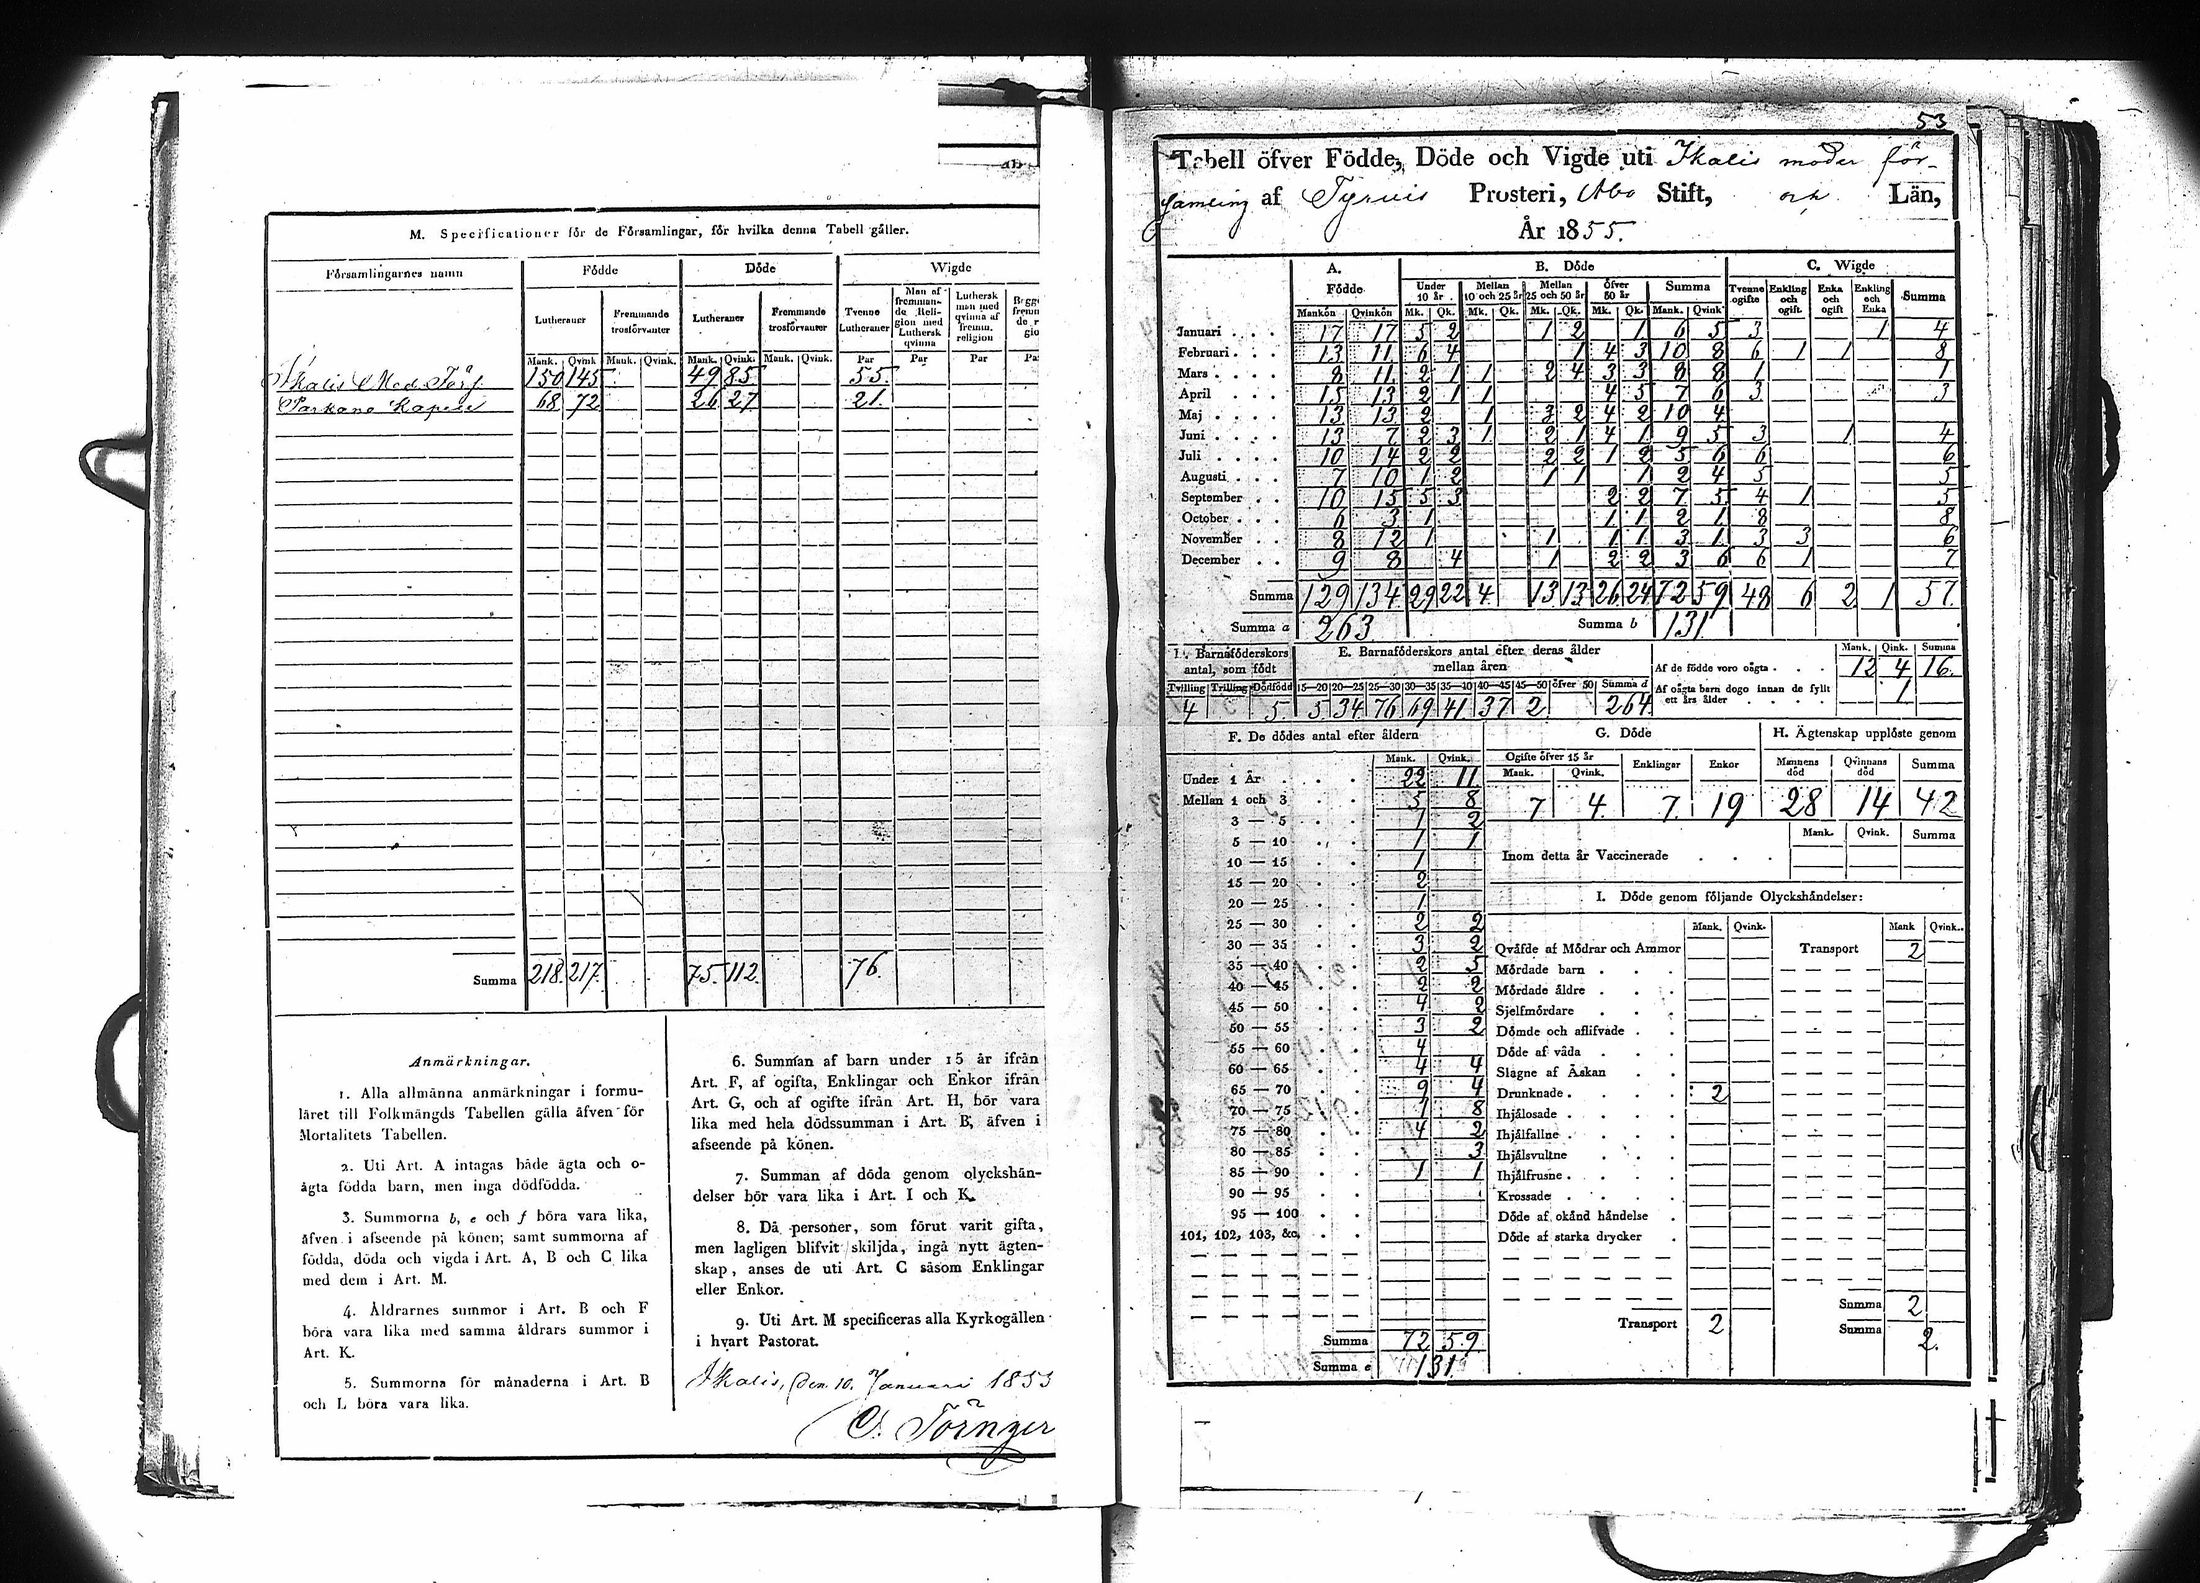 M. Specificationer för de Församlingar, för hvilka denna Tabell gäller.
Församlingarnes namn Födde Döde Wigde
Lutheraner Fremmande trosförvanter Lutheraner Fremmande trosförvanter Tvenne Lutheraner Man af fremmande Religion med Luthersk qvinna Luthersk man med qvinna af fremm. religion
Mank. Qvink Mank. Qvink. Mank. Qvink. Mank. Qvink. Par Par Par
Ikalis Mod. Förs. 150 145 49 85 55.
Parkano Kapell 68 72 26 27 21.
Summa 218. 217. 75. 112. 76.
Anmärkningar.
1. Alla allmänna anmärkningar i formu-
läret till Folkmängds Tabellen gälla äfven för
Mortalitets Tabellen.
2. Uti Art. A intagas både ägta och o-
ägta födda barn, men inga dödfödda.
3. Summorna b, e och f böra vara lika,
äfven i afseende på könen; samt summorna af
födda, döda och vigda i Art. A, B och C lika
med dem i Art. M.
4. Åldrarnes summor i Art. B och F
böra vara lika med samma åldrars summor i
Art. K.
5. Summorna för månaderna i Art. B
och L böra vara lika.
6. Summan af barn under 15 år ifrån
Art. F, af ogifta, Enklingar och Enkor ifrån
Art. G, och af ogifte ifrån Art. H, bör vara
lika med hela dödssumman i Art. B, äfven i
afseende på könen.
7. Summan af döda genom olyckshän-
delser bör vara lika i Art. I och K.
8. Då personer, som förut varit gifta,
men lagligen blifvit skiljda, ingå nytt ägten-
skap, anses de uti Art. C såsom Enklingar
eller Enkor.
9. Uti Art. M specificeras alla Kyrkogällen
i hvart Pastorat.
Ikalis, den 10. Januari 1853
C. Törnger
53
Tabell öfver Födde, Döde och Vigde uti Ikalis moder för-
samling af Tyrvis Prosteri, Abo Stift, och Län,
År 1855.
A. Födde B. Döde C. Wigde
Under 10 år Mellan 10 och 25 år Mellan 25 och 50 år Öfver 50 år Summa Tvenne ogifte Enkling och ogift Enka och ogift Enkling och Enka Summa
Mankön Qvinkön Mk. Qk. Mk. Qk. Mk. Qk. Mk. Qk. Mank. Qvink
Januari 17 17 5 2 1 2 1 6 5 3 1 4
Februari 13 11 6 4 1 4 3 10 8 6 1 1 8
Mars 8 11 2 1 1 2 4 3 3 8 8 1 1
April 15 13 2 1 1 4 5 7 6 3 3
Maj 13 13 2 1 3 2 4 2 10 4
Juni 13 7 2 3 1 2 1 4 1 9 5 3 1 4
Juli 10 14 2 2 2 2 1 2 5 6 6 6
Augusti 7 10 1 2 1 1 1 2 4 5 5
September 10 15 5 3 2 2 7 5 4 1 5
October 6 3 1 1 1 2 1 8 8
November 8 12 1 1 1 1 3 1 3 3 6
December 9 8 4 1 2 2 3 6 6 1 7
Summa 129 134 29 22 4 13 13 26 24 72 59 48 6 2 1 57.
Summa a 263 Summa b 131
Barnaföderskors antal, som födt
Tvilling Trilling Dödfödd
4 5.
E. Barnaföderskors antal efter deras ålder mellan åren
15—20 20—25 25—30 30—35 35—40 40—45 45—50 öfver 50 Summa d
5 34 76 69 41 37 2 264
Mank. Qink. Summa
Af de födde voro oägta 12 4 16.
Af oägta barn dogo innan de fyllt ett års ålder 1
F. De dödes antal efter åldern
Mank. Qvink.
Under 1 År 22 11
Mellan 1 och 3 5 8
3 — 5 1 2
5 — 10 1 1
10 — 15 1
15 — 20 2
20 — 25 1
25 — 30 2 2
30 — 35 3 2
35 — 40 2 5
40 — 45 2 2
45 — 50 4 2
50 — 55 3 2
55 — 60 4
60 — 65 4 4
65 — 70 9 4
70 — 75 1 8
75 — 80 4 2
80 — 85 3
85 — 90 1 1
90 — 95
95 — 100
101, 102, 103, &c.
Summa 72 59
Summa e 131
G. Döde
Ogifte öfver 15 år Enklingar Enkor
Mank. Qvink.
7 4 7. 19
H. Ägtenskap upplöste genom
Mannens död Qvinnans död Summa
28 14 42
Mank. Qvink. Summa
Inom detta år Vaccinerade
I. Döde genom följande Olyckshändelser:
Mank. Qvink. Mank Qvink.
Qväfde af Mödrar och Ammor Transport 2
Mördade barn
Mördade äldre
Sjelfmördare
Dömde och aflifvade
Döde af våda
Slagne af Åskan
Drunknade 2
Ihjälosade
Ihjälfallne
Ihjälsvultne
Ihjälfrusne
Krossade
Döde af okänd händelse
Döde af starka drycker
Summa 2
Transport 2 Summa 2.